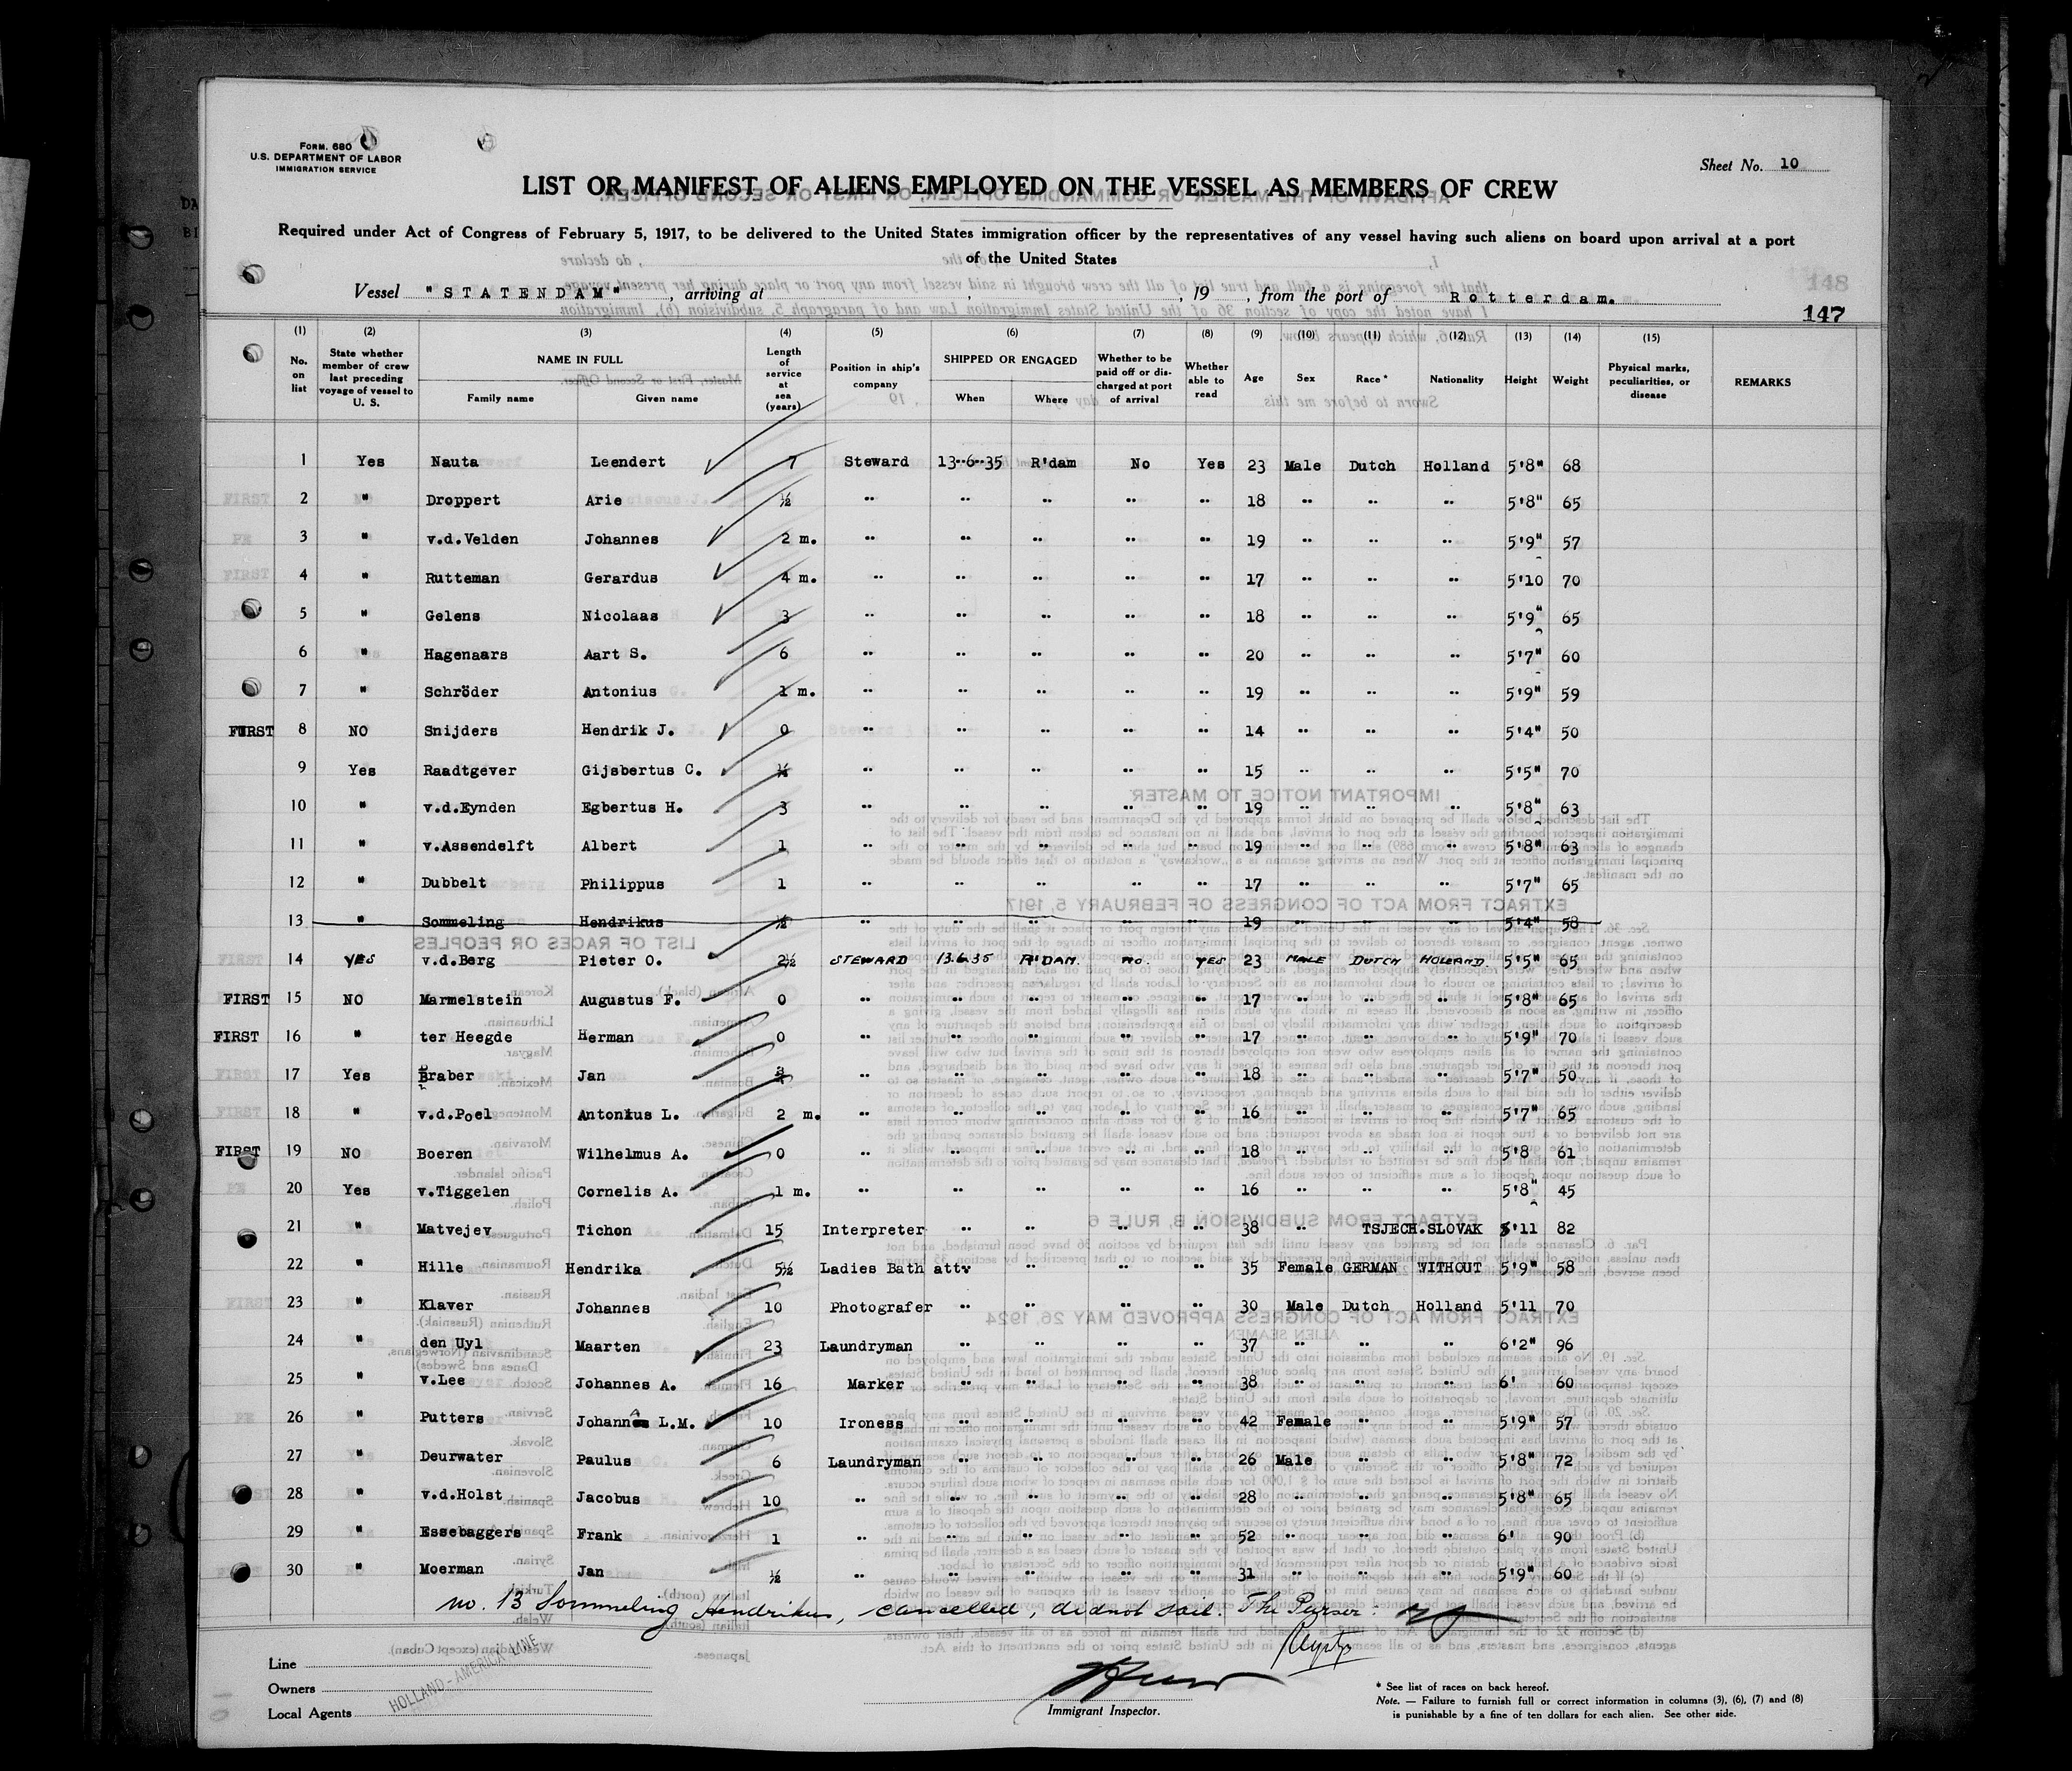 FORM. 680
U.S. DEPARTMENT OF LABOR
IMMIGRATION SERVICE
Sheet No. 10
LIST OR MANIFEST OF ALIENS EMPLOYED ON THE VESSEL AS MEMBERS OF CREW
Required under Act of Congress of February 5, 1917, to be delivered to the United States immigration officer by the representatives of any vessel having such aliens on board upon arrival at a port
of the United States
Vessel "STATENDAM", arriving at , , 19 , from the port of Rotterdam.
148
147
(1) (2) (3) (4) (5) (6) (7) (8) (9) (10) (11) (12) (13) (14) (15)
No. on list State whether member of crew last preceding voyage of vessel to U. S. NAME IN FULL Family name Given name Length of service at sea (years) Position in ship's company SHIPPED OR ENGAGED When Where Whether to be paid off or discharged at port of arrival Whether able to read Age Sex Race* Nationality Height Weight Physical marks, peculiarities, or disease REMARKS
1 Yes Nauta Leendert 7 Steward 13-6-35 R'dam No Yes 23 Male Dutch Holland 5'8" 68
2 " Droppert Arie ½ " " " " " 18 " " " 5'8" 65
3 " v.d.Velden Johannes 2 m. " " " " " 19 " " " 5'9" 57
4 " Rutteman Gerardus 4 m. " " " " " 17 " " " 5'10 70
5 " Gelens Nicolaas 3 " " " " " 18 " " " 5'9" 65
6 " Hagenaars Aart S. 6 " " " " " 20 " " " 5'7" 60
7 " Schröder Antonius 1 m. " " " " " 19 " " " 5'9" 59
FIRST 8 NO Snijders Hendrik J. 0 " " " " " 14 " " " 5'4" 50
9 Yes Raadtgever Gijsbertus C. ½ " " " " " 15 " " " 5'5" 70
10 " v.d.Eynden Egbertus H. 3 " " " " " 19 " " " 5'8" 63
11 " v.Assendelft Albert 1 " " " " " 19 " " " 5'8" 63
12 " Dubbelt Philippus 1 " " " " " 17 " " " 5'7" 65
13 " Sommeling Hendrikus ½ " " " " " 19 " " " 5'4" 58
14 YES v.d.Berg Pieter O. 2½ STEWARD 13.6.35 R'DAM. No. YES 23 MALE DUTCH HOLLAND. 5'5" 65
FIRST 15 NO Marmelstein Augustus F. 0 " " " " " 17 " " " 5'8" 65
FIRST 16 " ter Heegde Herman 0 " " " " " 17 " " " 5'9" 70
17 Yes Braber Jan " " " " " 18 " " " 5'7" 50
18 " v.d.Poel Antonius L. 2 m. " " " " " 16 " " " 5'7" 65
FIRST 19 NO Boeren Wilhelmus A. 0 " " " " " 18 " " " 5'8 61
20 Yes v.Tiggelen Cornelis A. 1 m. " " " " " 16 " " " 5'8" 45
21 " Matvejev Tichon 15 Interpreter " " " " 38 " TSJECH.SLOVAK 5'11 82
22 " Hille Hendrika 5½ Ladies Bath att. " " " " 35 Female GERMAN WITHOUT 5'9" 58
23 " Klaver Johannes 10 Photografer " " " " 30 Male Dutch Holland 5'11 70
24 " den Uyl Maarten 23 Laundryman " " " " 37 " " " 6'2" 96
25 " v.Lee Johannes A. 16 Marker " " " " 38 " " " 6' 60
26 " Putters Johanna L.M. 10 Ironess " " " " 42 Female " " 5'9" 57
27 " Deurwater Paulus 6 Laundryman " " " " 26 Male " " 5'8" 72
28 " v.d.Holst Jacobus 10 " " " " " 28 " " " 5'8" 65
29 " Essebaggers Frank 1 " " " " " 52 " " " 6' 90
30 " Moerman Jan ½ " " " " " 31 " " " 5'9" 60
no. 13 Sommeling Hendrikus, cancelled, did not sail. The Purser:
Line
Owners HOLLAND-AMERICA LINE
Local Agents
Immigrant Inspector.
* See list of races on back hereof.
Note. — Failure to furnish full or correct information in columns (3), (6), (7) and (8)
is punishable by a fine of ten dollars for each alien. See other side.